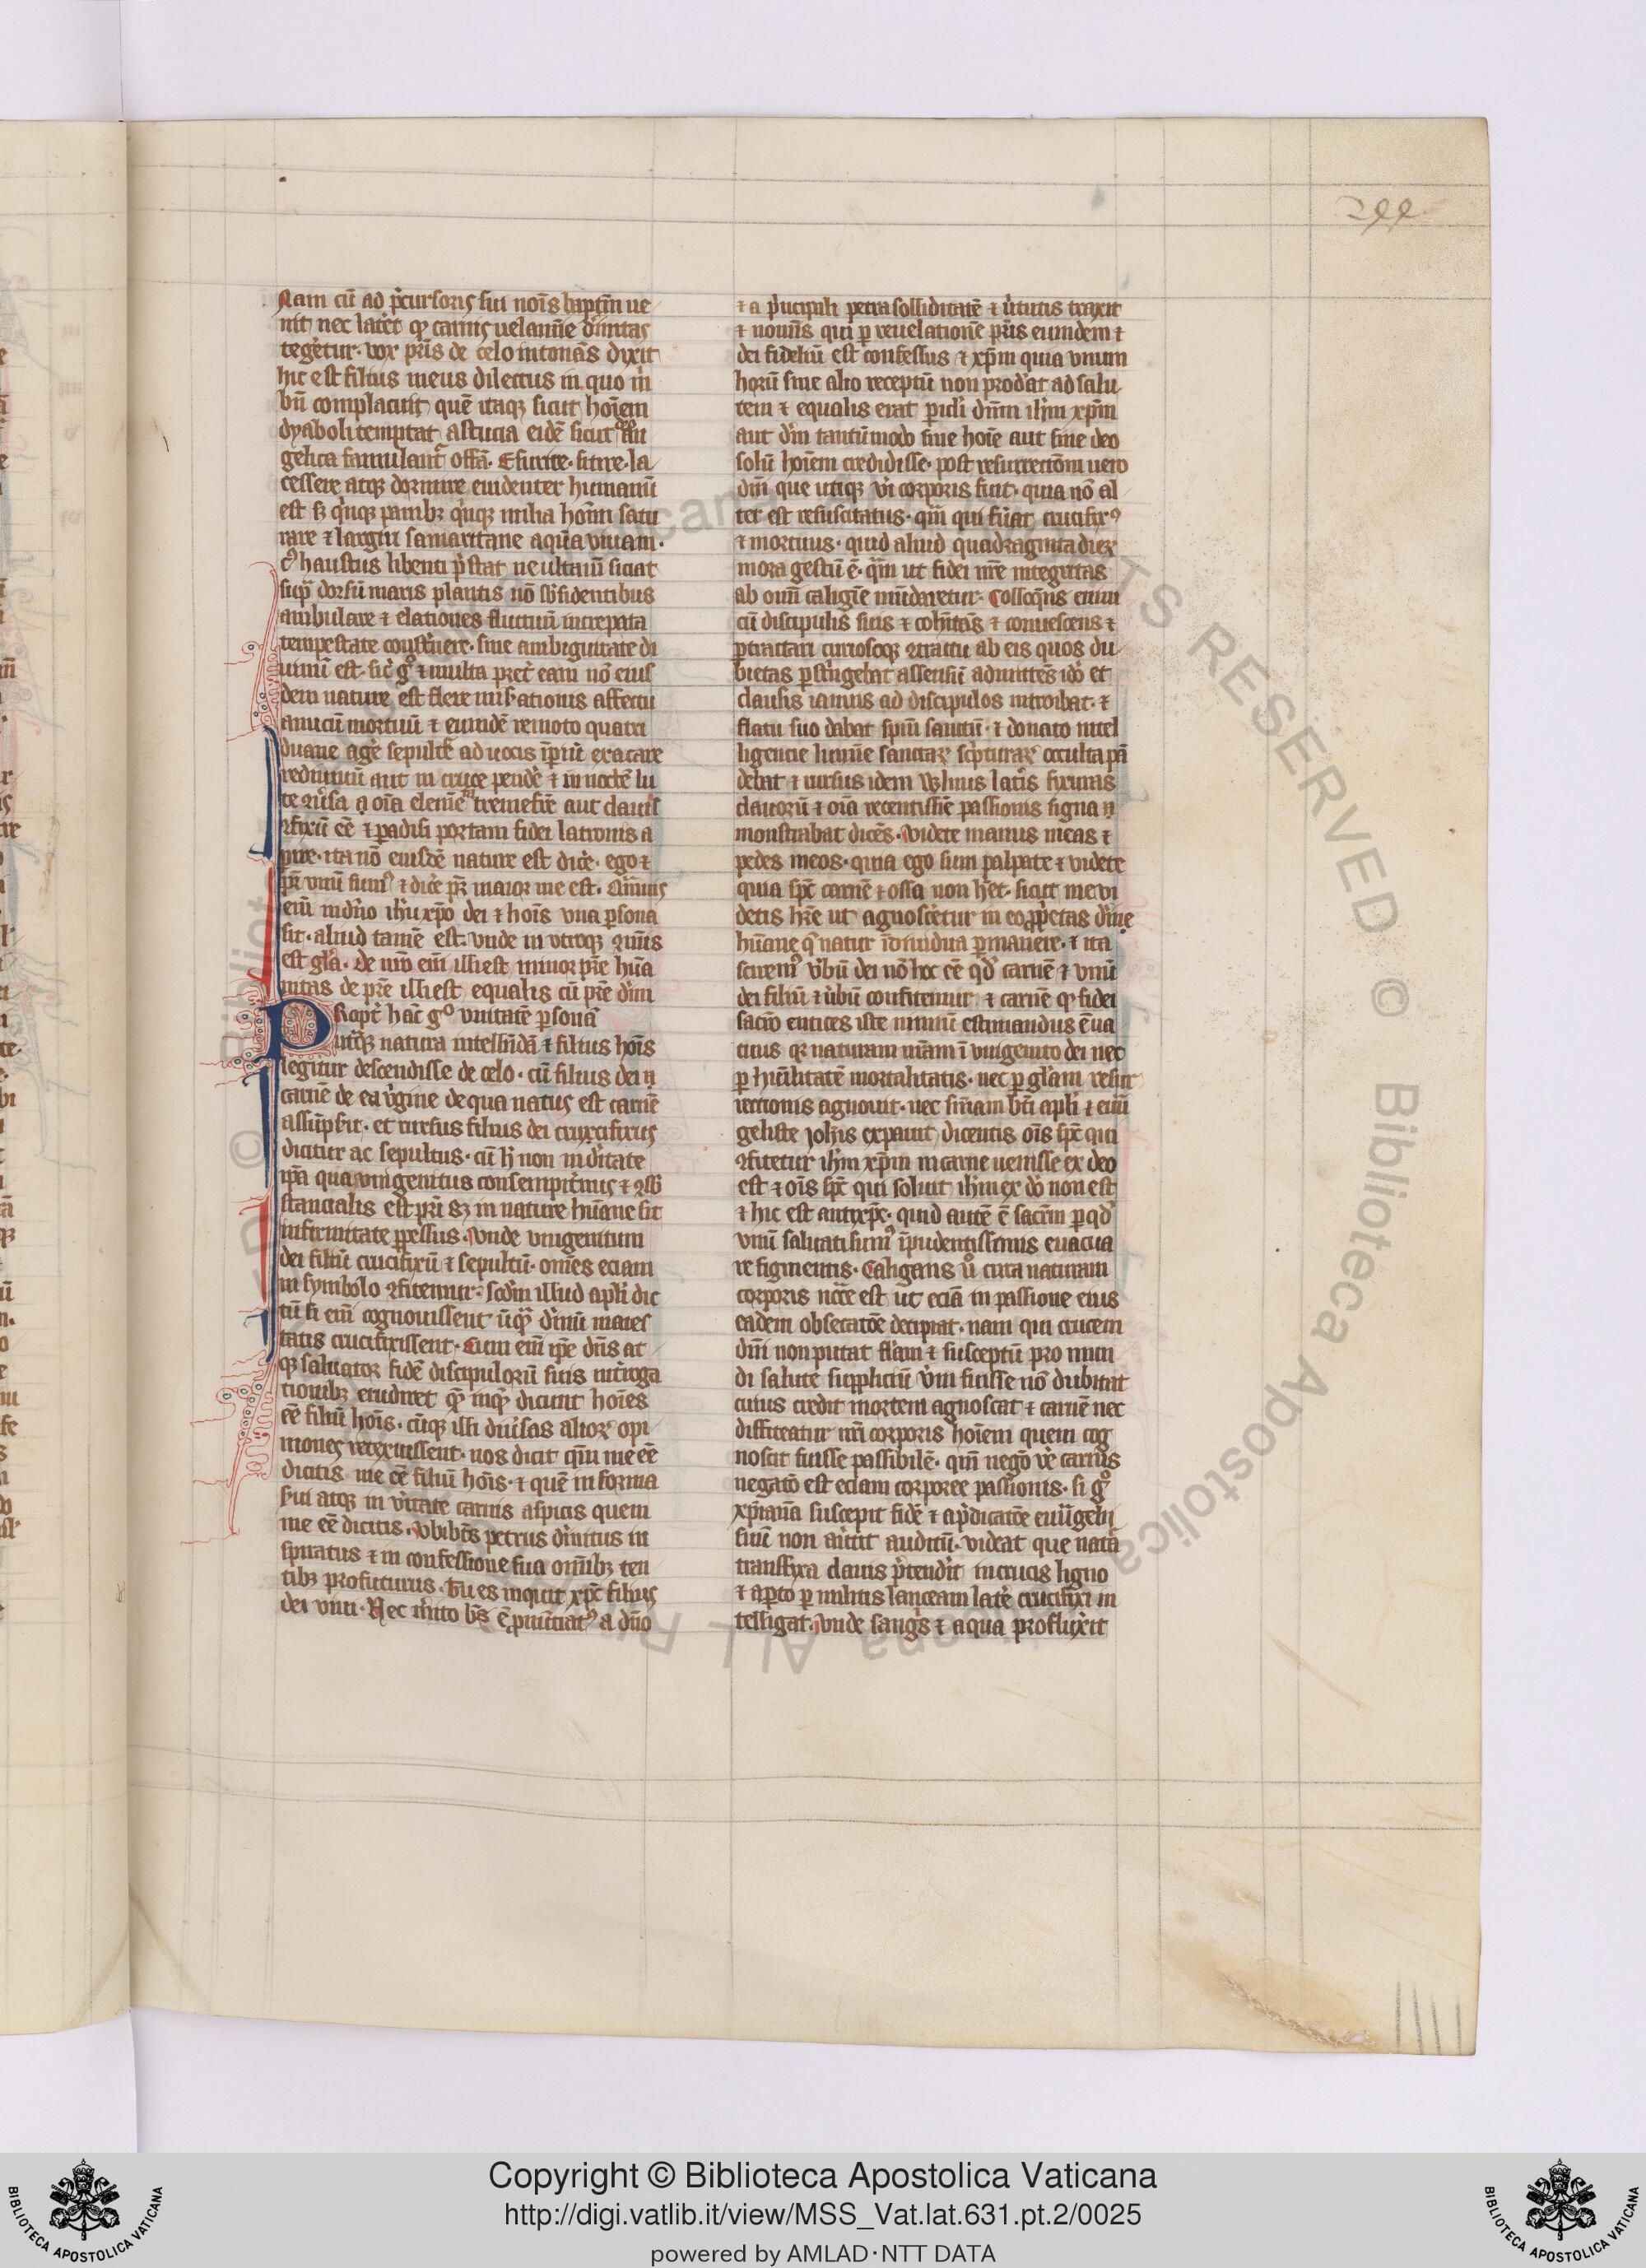 299
Nam cū ad p̃cursoris sui noīs baptm̃ ue
nit nec latet̃ q̃ carnis uelamīe diuintas
tegẽtur. vox pr̃is de celo intonās dixit
hic est filius meus dilectus in quo m̃
bñ complacuit quē itaqꝫ sicut hoīem
dyaboli temptat astucia eidē sicut deo an
gelica famulant̃ offa. Esurire. sitire. la
cessere atqꝫ dormire euidenter humanū
est sꝫ qinqꝫ panibꝫ qinqꝫ milia hoīm satu
rare ⁊ largiri samaritane aquā viuam.
cꝰ haustus bibenti p̃stat ne ultaiū siciat
sup̃ dorsū maris plantis nō sb̃sidentibus
ambulare ⁊ elationes fluctuū increpata
tempestate constñere. sine ambiguitate di
uinū est. sic̃ gͦ ⁊ multa pret̃ eam nō eius
dem nature est flere mis̃ationis affectu
amicū mortuū ⁊ eundē remoto quatri
duane aggẽ sepulture ad uocis ip̄iū excitare
rediuiuū aut in cruce pendẽ ⁊ in noctē lu
ce ꝯũsa oīa elemēta tremefcẽ aut clauis
ꝯfixū eē ⁊ padisi portam fidei latronis a
pire. ita nō eiusdē nature est dicẽ. ego ⁊
pr̃ vnū sumꝰ ⁊ dicẽ pr̃ maior me est. Quāuis
eim̃ in dño ih̃u xp̃o dei ⁊ hoīs vna psona
sit. aliud tamē est. vnde in vtroqꝫ ꝯmūis
est gl̃a. de nr̃o eim̃ illi est minor pr̃e hūa
nitas de pr̃e illi est equalis cū pr̃e diuī
Propt̃ hāc gͦ vnitatē psonā
utqꝫ natura intelligẽdā ⁊ filius hoīs
legitur descendisse de celo. cū filius dei
carnē de ea ũgine de qua natus est carnē
assūpsit. et rursus filius dei crucifixus
dicitur ac sepultus. cū h̃ non in diuitate
ip̃a qua vnigenitus consempitñus ⁊ ꝯsb̃
stancialis est pri sꝫ in nature hūane sit
infirmitate ppessus. Unde vnigenitum
dei filiū crucifixū ⁊ sepultū. omēs eciam
in symbolo ꝯfitemur. scdm illud apli dic
tū si eim̃ cognouissent nūq̃ dñm maies
tatis crucifixissent. Cum eim̃ ip̃e dñs at
qꝫ saluator fidē discipulorū suis int̃roga
tionibꝫ erudiret q̃ inq̃ dicunt hoīes
eē filiū hoīs. cūqꝫ illi diũsas alioꝝ opi
niones retexuissent. uos dicit qm̃ me eē
dicitis me eē filiū hoīs. ⁊ quē in forma
sui atqꝫ in ũitate carnis aspicis quem
me eē dicitis. Ubi bt̃s petrus diuitus in
spiratus ⁊ in confessione sua omībꝫ gen
tibꝫ profuturus. Tu es inquit xp̃c filius
dei viui. Nec im̃ito bt̃s ē pnuntiatꝰ a dño
⁊ a p̃ncipali petra solliditatē ⁊ ũtutis traxit
⁊ nomīs qui p reuelationē pr̃is eundem ⁊
dei fideliū est confessus ⁊ xp̃m quia vnum
horū sine alio receptū non prodẽat ad salu
tem ⁊ equalis erat piculi dñm ih̃m xp̃m
aut dm̃ tantūmodo sine hoīe aut sine deo
solū hoīem credidisse. post resurrectōm uero
dñi que utiqꝫ ũi corporis fuit. quia nō al
ter est resuscitatus. qm̃ qui fũat crucifixꝰ
⁊ mortuus. quid aliud quadraginta dieꝝ
mora gestū ē. qm̃ ut fidei nr̃e integritas
ab omī caligīe mūdaretur. Colloq̃ns enim
cū discipulis suis ⁊ cohitās ⁊ conuescens ⁊
ptractari curiosoqꝫ ꝯtractu ab eis quos du
bietas pstrĩgebat assensū admittēs ido et
clausis ianuis ad discipulos introibat. ⁊
flatu suo dabat spm̃ sanctū. ⁊ donato intel
ligencie lumīe sanctaꝝ sc̃pturaꝝ occulta pā
debat ⁊ rursus idem vulnus latis fixuras
clauorū ⁊ oīa recentissīe passionis signa
monstrabat dicēs. Uidete manus meas ⁊
pedes meos. quia ego sum palpate ⁊ videte
quia sp̃c carnē ⁊ ossa non het̃. sicut me vi
detis hr̃e ut agnoscẽtur in eo pprietas diuīe
hūane q̃ natur indiuidua pmanere. ⁊ ita
sciremꝰ ũbū dei nō hoc eē qd̃ carnē ⁊ vnū
dei filiū ⁊ ũbū confitemur ⁊ carnē q̃ fidei
sacro eutices iste nimiū estimandus ē ua
cuus qꝛ naturam nr̃am ī vnigenito dei nec
p humilitatē mortalitatis. nec p gl̃iam resur
rectionis agnouit. nec sm̃am bt̃i apli ⁊ euū
geliste Joh̃is expauit dicentis oīs sp̃c qui
ꝯfitetur ih̃m xp̃m in carne uenisse ex deo
est ⁊ oīs sp̃c qui soluit ih̃m ex dō non est
⁊ hic est antixp̃c. quid autē ē sacm̃ p qd̃
vnū saluati sumꝰ ĩpudentissimis euacua
re figmentis. Caligans ũo circa naturam
corporis ncc̃e est ut eciā in passione eius
eadem obsecatōe decipiat. nam qui crucem
dñi non putat fl̃am ⁊ susceptū pro mun
di salute suppliciū ũm fuisse nō dubitat
cuius credit mortem agnoscat ⁊ carnē nec
diffiteatur nr̃i corporis hoīem quem cog
noscit fuisse passibilē. qm̃ negō ṽe carnis
negatō est eciam corporee passionis. si gͦ
xp̃ianā suscepit fidē ⁊ a p̃dicatōe euāgelij
suū non aũtit auditū. videat que nata
transfixa clauis p̃tendẽit in crucis ligno
⁊ apto p militis lanceam latẽ crucifixi in
telligat. Unde sanguis ⁊ aqua profluxit
Copyright © Biblioteca Apostolica Vaticana
http://digi.vatlib.it/view/MSS_Vat.lat.631.pt.2/0025
powered by AMLAD·NTT DATA
BIBLIOTECA APOSTOLICA VATICANA
BIBLIOTECA APOSTOLICA VATICANA